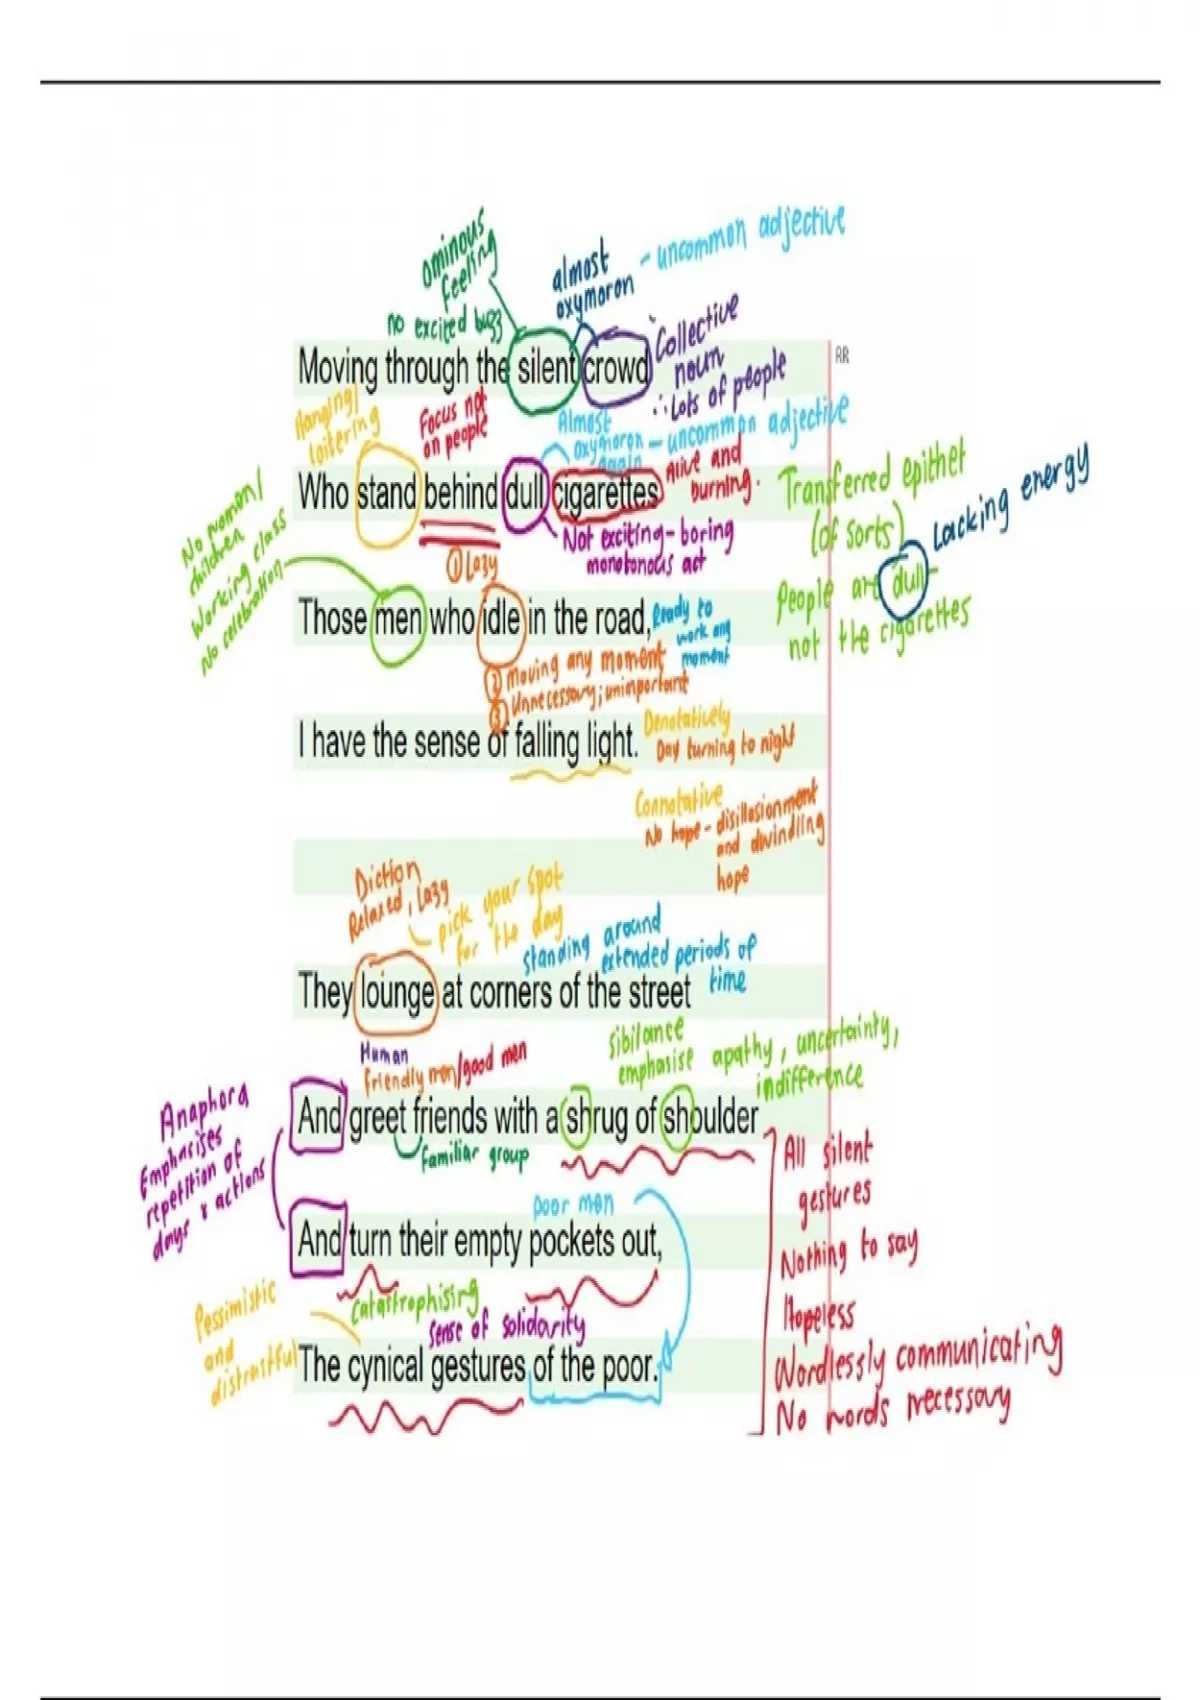 ominous
feeling
no excited buzz
almost
oxymoron
- uncommon adjective
Collective
noun
∴ Lots of people
Moving through the silent crowd
RR
Hanging/
loitering
Focus not
on people
Almost
oxymoron - uncommon adjective
again
alive and
burning.
Who stand behind dull cigarettes
Not exciting - boring
monotonous act
① Lazy
Transferred epithet
(of sorts)
People are dull -
not the cigarettes
Lacking energy
No women/
children
Working class
No celebration
Those men who idle in the road,
Ready to
work any
moment
② Moving any moment
③ Unnecessary; unimportant
I have the sense of falling light.
Denotatively
Day turning to night
Connotative
No hope - disillusionment
and dwindling
hope
Diction
Relaxed, Lazy
pick your spot
for the day
standing around
extended periods of
time
They lounge at corners of the street
Human
Friendly men/good men
Sibilance
emphasise apathy, uncertainty,
indifference
And greet friends with a shrug of shoulder
familiar group
Anaphora
Emphasises
repetition of
days & actions
poor men
And turn their empty pockets out,
catastrophising
sense of solidarity
Pessimistic
and
distrustful
The cynical gestures of the poor.
All silent
gestures
Nothing to say
Hopeless
Wordlessly communicating
No words necessary